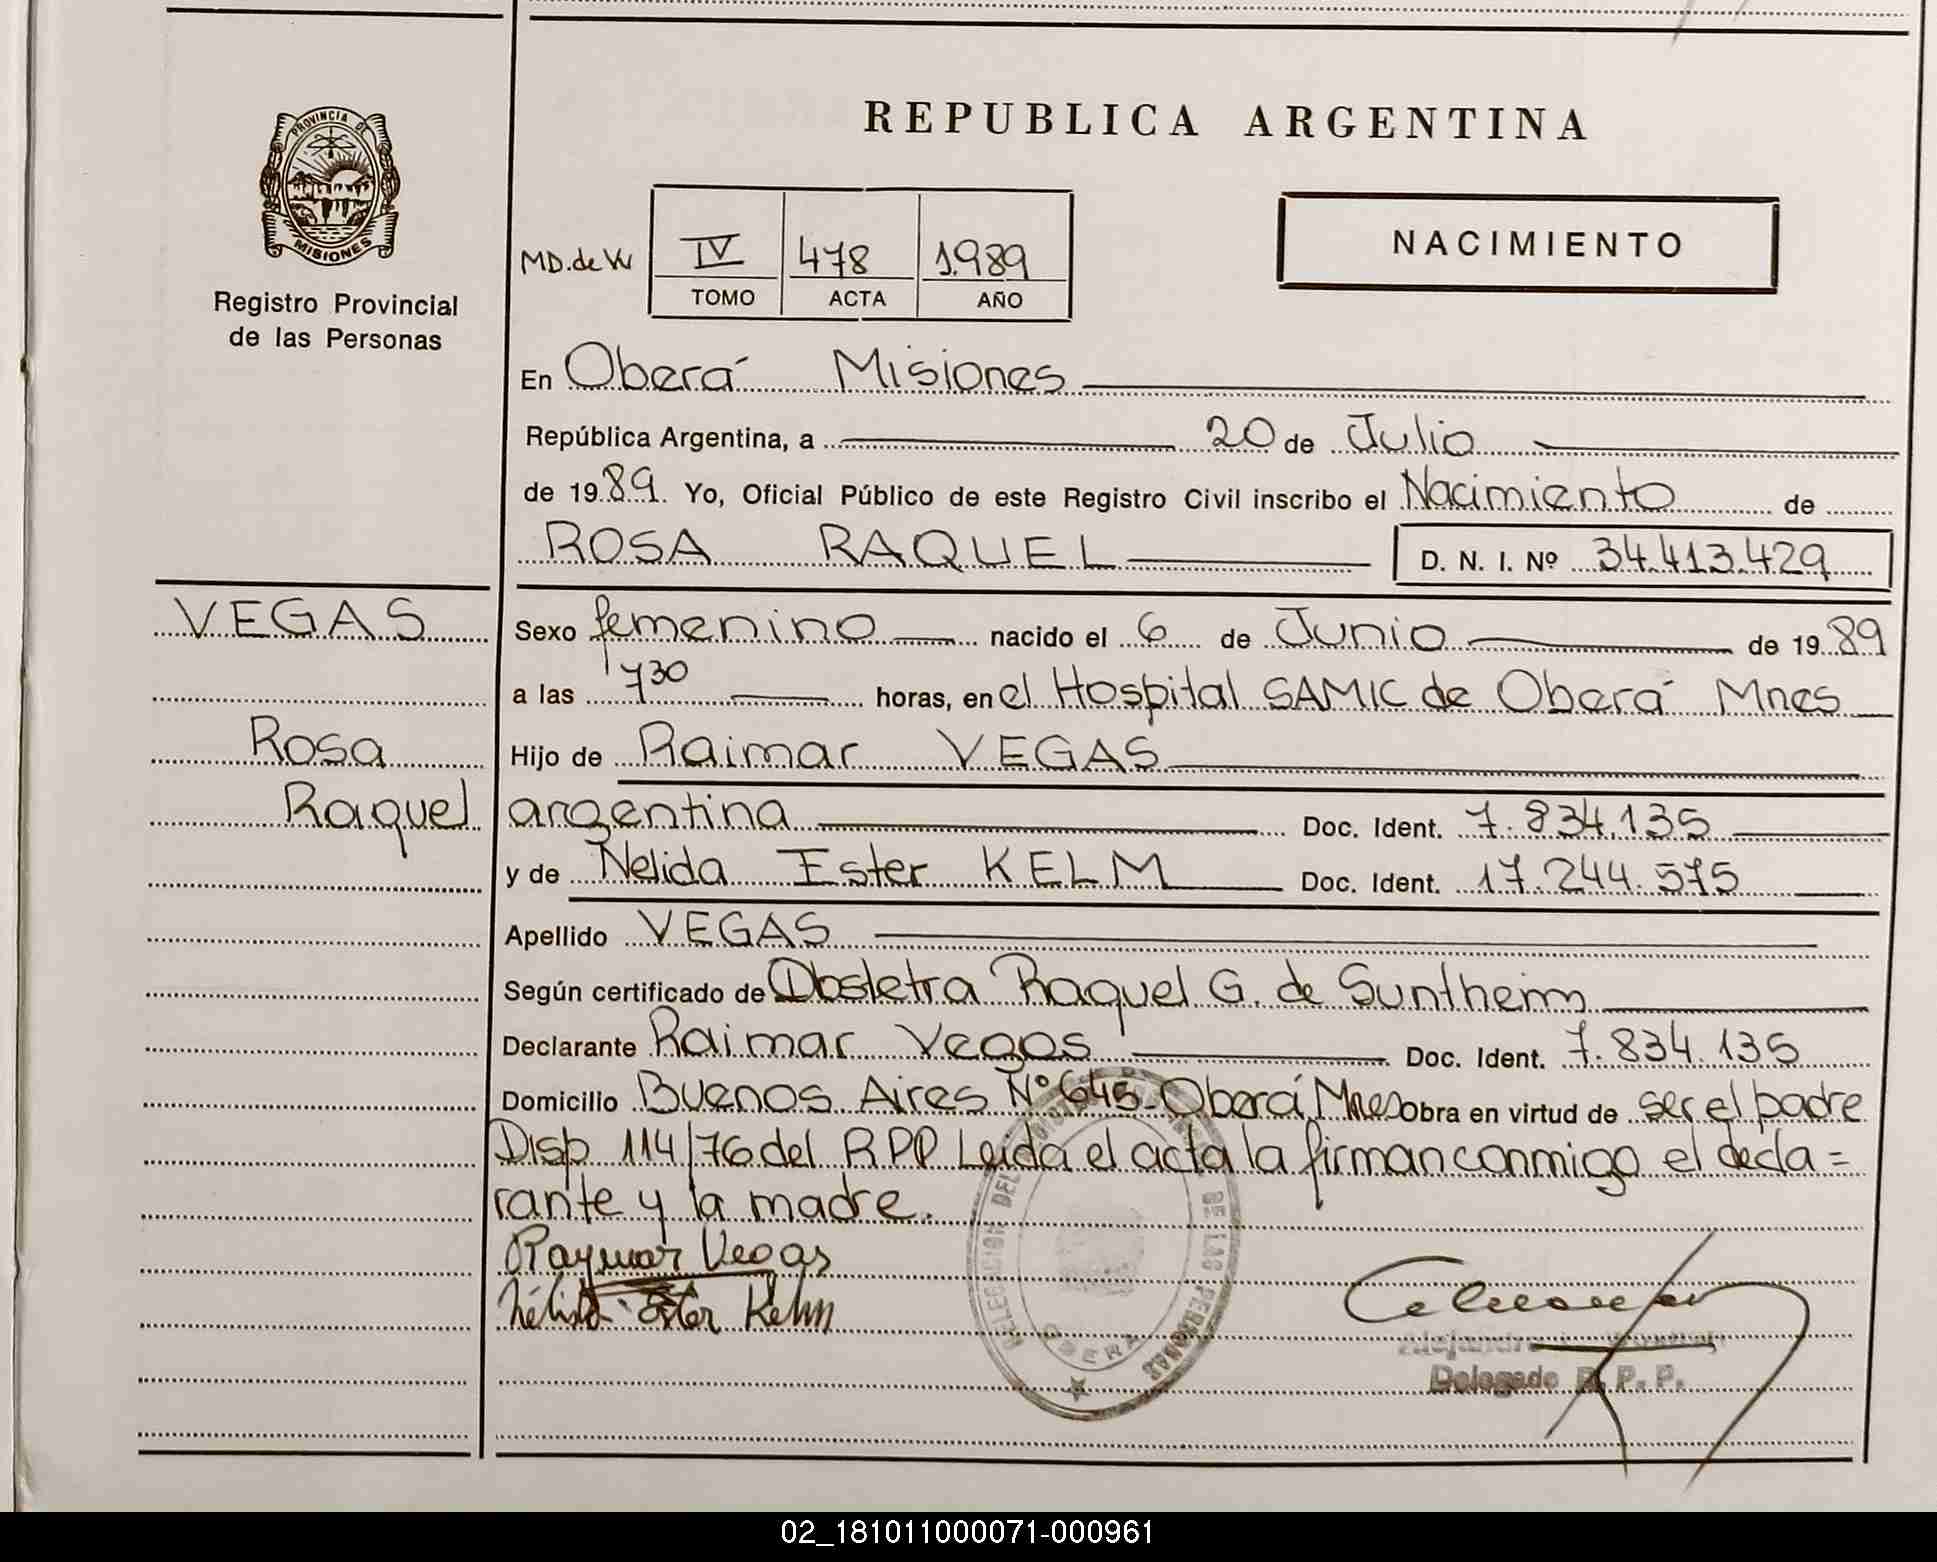 REPUBLICA ARGENTINA
PROVINCIA DE
MISIONES
Registro Provincial
de las Personas
MD.de W
IV 478 1.989
TOMO ACTA AÑO
NACIMIENTO
En Oberá Misiones
República Argentina, a 20 de Julio
de 1989. Yo, Oficial Público de este Registro Civil inscribo el Nacimiento de
ROSA RAQUEL D. N. I. Nº 34.413.429
VEGAS
Rosa
Raquel
Sexo femenino nacido el 6 de Junio de 1989
a las 730 horas, en el Hospital SAMIC de Oberá Mnes
Hijo de Raimar VEGAS
argentina Doc. Ident. 7.834.135
y de Nelida Ester KELM Doc. Ident. 17.244.575
Apellido VEGAS
Según certificado de Obstetra Raquel G. de Suntheim
Declarante Raimar Vegas Doc. Ident. 7.834.135
Domicilio Buenos Aires Nº 645-Oberá Mnes Obra en virtud de ser el padre
Disp 114/76 del RPP Leida el acta la firman conmigo el decla=
rante y la madre.
Raymar Vegas
Nélida Ester Kelm
DELEGACION DEL DE LAS PERSONAS
OBERA
Delegado R. P. P.
02_181011000071-000961